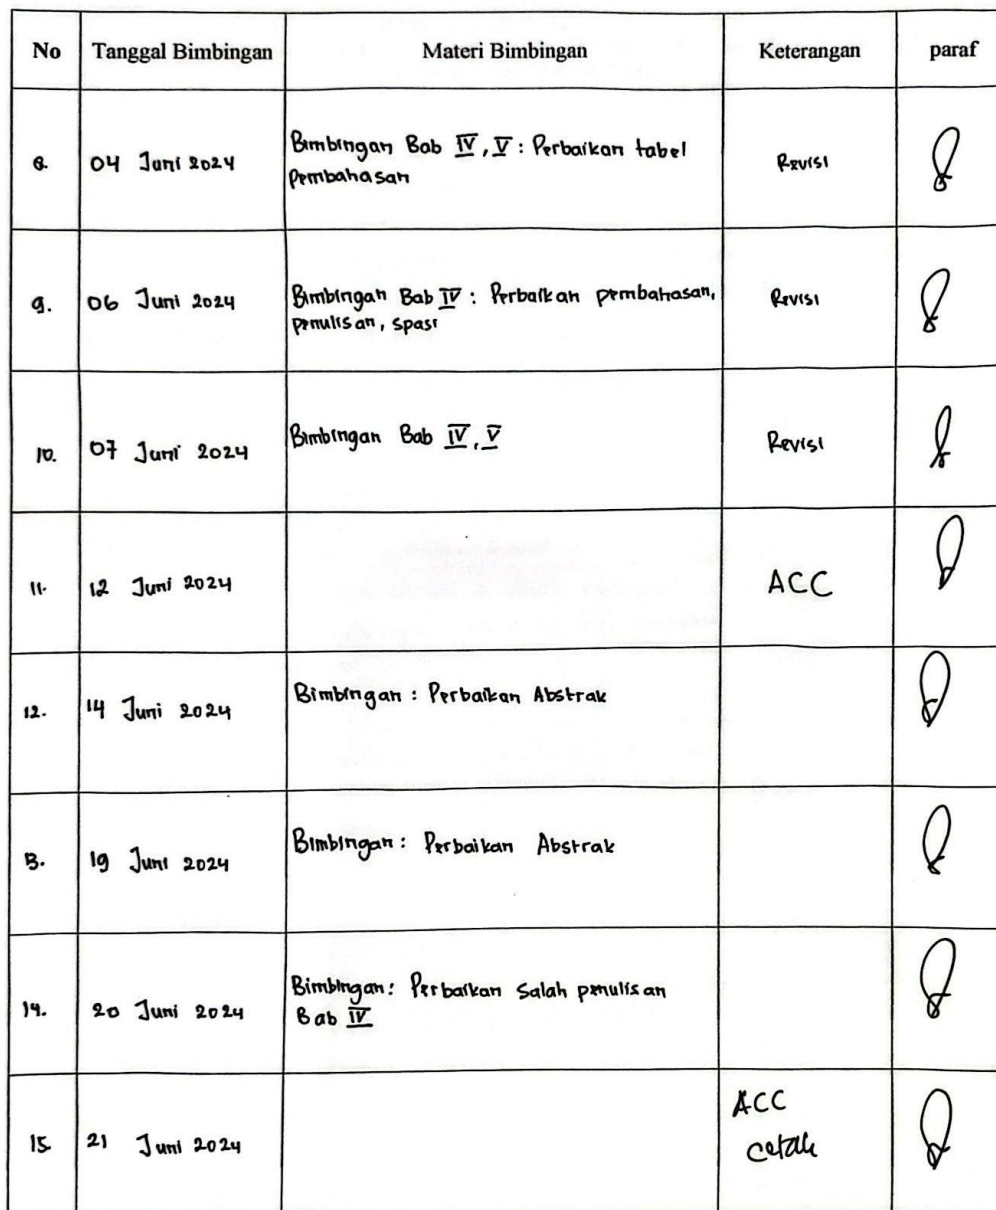 No Tanggal Bimbingan Materi Bimbingan Keterangan paraf
8. 04 Juni 2024 Bimbingan Bab IV, V : Perbaikan tabel Revisi
Pembahasan
9. 06 Juni 2024 Bimbingan Bab IV : Perbaikan pembahasan, Revisi
penulisan, spasi
10. 07 Juni 2024 Bimbingan Bab IV, V Revisi
11. 12 Juni 2024 ACC
12. 14 Juni 2024 Bimbingan : Perbaikan Abstrak
13. 19 Juni 2024 Bimbingan : Perbaikan Abstrak
14. 20 Juni 2024 Bimbingan : Perbaikan Salah penulisan
Bab IV
15. 21 Juni 2024 ACC
cetak